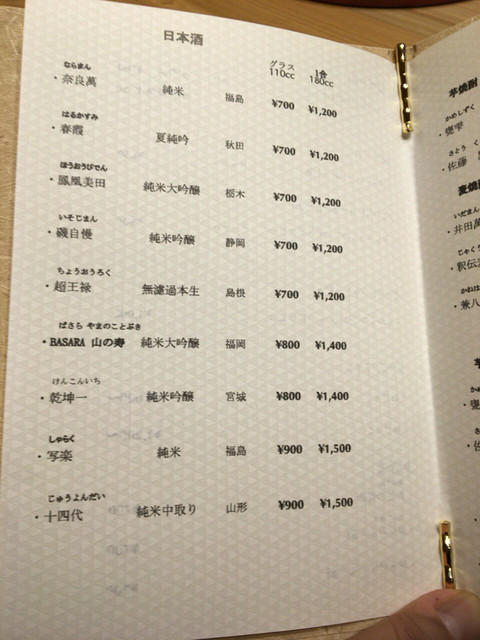 日本酒
グラス 1合
110cc 180cc
ならまん
・奈良萬 純米 福島 ¥700 ¥1,200
はるかすみ
・春霞 夏純吟 秋田 ¥700 ¥1,200
ほうおうびでん
・鳳凰美田 純米大吟醸 栃木 ¥700 ¥1,200
いそじまん
・磯自慢 純米吟醸 静岡 ¥700 ¥1,200
ちょうおうろく
・超王禄 無濾過本生 島根 ¥700 ¥1,200
ばさら やまのことぶき
・BASARA 山の寿 純米大吟醸 福岡 ¥800 ¥1,400
けんこんいち
・乾坤一 純米吟醸 宮城 ¥800 ¥1,400
しゃらく
・写楽 純米 福島 ¥900 ¥1,500
じゅうよんだい
・十四代 純米中取り 山形 ¥900 ¥1,500
芋焼酎
かめしずく
・甕雫
さとう く
・佐藤
麦焼
いだまん
・井田萬
じゃくう
・釈伝
かねは
・兼八